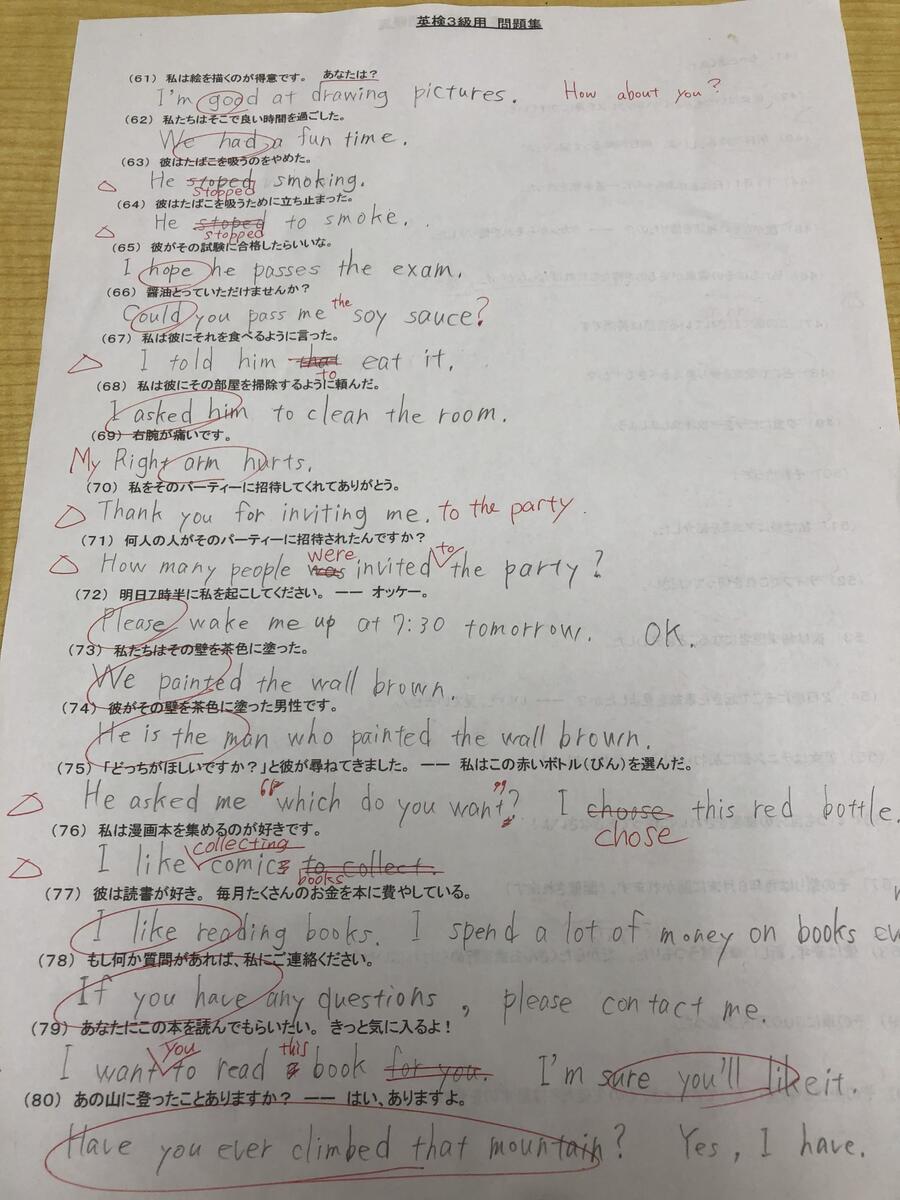 英検３級用　問題集
（61） 私は絵を描くのが得意です。　あなたは？
I'm good at drawing pictures.　How about you?
（62） 私たちはそこで良い時間を過ごした。
We had a fun time.
（63） 彼はたばこを吸うのをやめた。
△ He stoped smoking.
stopped
（64） 彼はたばこを吸うために立ち止まった。
△ He stoped to smoke.
stopped
（65） 彼がその試験に合格したらいいな。
I hope he passes the exam.
（66） 醤油とっていただけませんか？
Could you pass me the soy sauce?
（67） 私は彼にそれを食べるように言った。
△ I told him that eat it.
to
（68） 私は彼にその部屋を掃除するように頼んだ。
I asked him to clean the room.
（69） 右腕が痛いです。
My Right arm hurts.
（70） 私をそのパーティーに招待してくれてありがとう。
△ Thank you for inviting me. to the party.
（71） 何人の人がそのパーティーに招待されたんですか？
were to
△ How many people was invited the party?
（72） 明日7時半に私を起こしてください。 ーー オッケー。
Please wake me up at 7:30 tomorrow.　OK.
（73） 私たちはその壁を茶色に塗った。
We painted the wall brown.
（74） 彼がその壁を茶色に塗った男性です。
He is the man who painted the wall brown.
（75） 「どっちがほしいですか？」と彼が尋ねてきました。 ーー 私はこの赤いボトル(びん)を選んだ。
△ He asked me “which do you want?” I choose this red bottle.
chose
（76） 私は漫画本を集めるのが好きです。
collecting
△ I like comic to collect.
books
（77） 彼は読書が好き。 毎月たくさんのお金を本に費やしている。
I like reading books. I spend a lot of money on books ev
（78） もし何か質問があれば、私にご連絡ください。
If you have any questions, please contact me.
（79） あなたにこの本を読んでもらいたい。 きっと気に入るよ！
you this
I want to read book for you. I'm sure you'll like it.
（80） あの山に登ったことありますか？ ーー はい、ありますよ。
Have you ever climbed that mountain? Yes, I have.